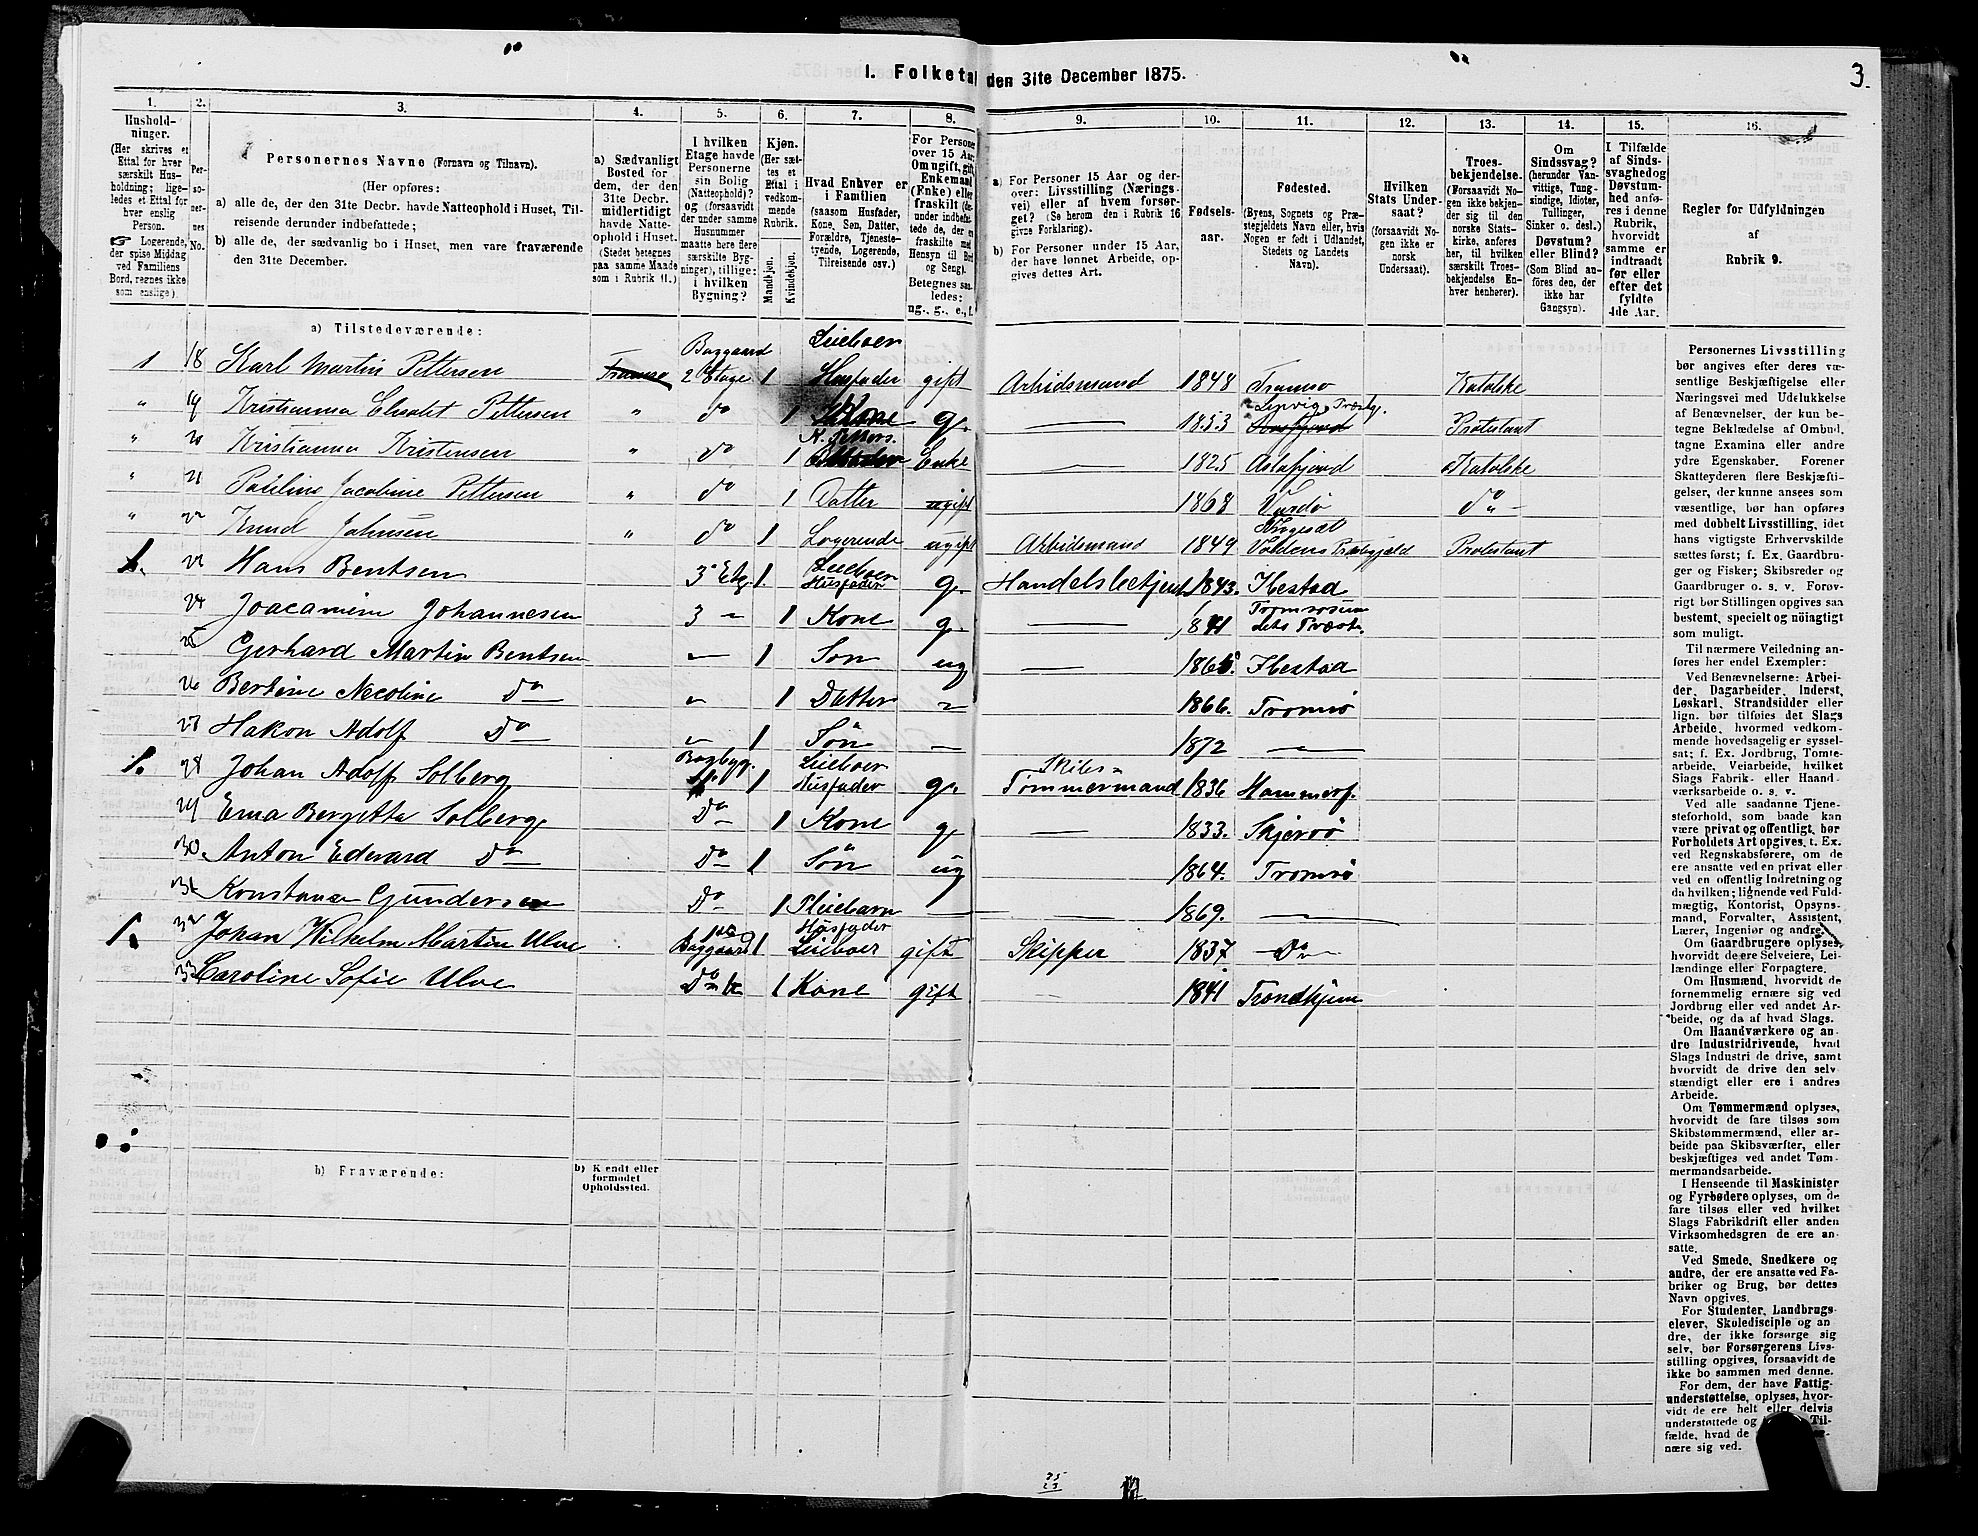 3.
I. Folketal den 31te December 1875.
1.
Husholdninger.
(Her skrives et Ettal for hver særskilt Husholdning; ligeledes et Ettal for hver enslig Person.
☞ Logerende, der spise Middag ved Familiens Bord, regnes ikke som enslige).
2.
Personernes No.
3.
Personernes Navne (Fornavn og Tilnavn).
(Her opføres:
a) alle de, der den 31te Decbr. havde Natteophold i Huset, Tilreisende derunder indbefattede;
b) alle de, der sædvanlig bo i Huset, men vare fraværende den 31te December.
4.
a) Sædvanligt Bosted for dem, der den 31te Decbr. midlertidigt havde Natteophold i Huset.
(Stedet betegnes paa samme Maade som i Rubrik 11.)
5.
I hvilken Etage havde Personerne sin Bolig (Natteophold)? og (forsaavidt der under samme Husnummer maatte høre flere særskilte Bygninger), tillige: i hvilken Bygning?
6.
Kjøn.
(Her sættes et Ettal i vedkommende Rubrik.
Mandkjøn.
Kvindekjøn.
7.
Hvad Enhver er i Familien
(saasom Husfader, Kone, Søn, Datter, Forældre, Tjenestetyende, Logerende, Tilreisende osv.)
8.
For Personer over 15 Aar: Om ugift, gift, Enkemand (Enke) eller fraskilt
9.
a) For Personer 15 Aar og derover: Livsstilling (Næringsvei) eller af hvem forsørget? (Se herom den i Rubrik 16 givne Forklaring).
b) For Personer under 15 Aar, der have lønnet Arbeide, opgives dettes Art.
10.
Fødselsaar.
11.
Fødested.
(Byens, Sognets og Præstegjeldets Navn, eller hvis Nogen er født i Udlandet, Stedets og Landets Navn).
12.
Hvilken Stats Undersaat?
(forsaavidt Nogen ikke er norsk Undersaat).
13.
Troesbekjendelse.
(Forsaavidt Nogen ikke bekjender sig til den norske Statskirke, anføres her, til hvilken særskilt Troesbekjendelse Enhver henhører).
14.
Om Sindssvag?
(herunder Vanvittige, Tungsindige, Idioter, Tullinger, Sinker o. desl.)
Døvstum? eller Blind?
(Som Blind anføres den, der ikke har Gangsyn).
15.
I Tilfælde af Sindssvaghed og Døvstumhed anføres i denne Rubrik, hvorvidt samme er indtraadt før eller efter det fyldte 4de Aar.
16.
Regler for Udfyldningen af Rubrik 9.
a) Tilstedeværende:
1 18 Karl Martin Pettersen Tromsø Baggaard 2 Etage 1 Leieboer Husfader gift Arbidsmand 1848 Tromsø Katolske
" 19 Kristianna Elisabet Pettersen " do 1 Kone g. 1853 Protestant
" 20 Kristianna Kristensen " do 1 Enke 1825 Katolske
" 21 Pauline Jacobine Pettersen " do 1 Datter ugift 1868 Vardø do
" 22 Knud Johnsen " do 1 Logerende ugift Arbidsmand 1849 Voldens Præstegjæld Protestant
1. 23 Hans Bentsen 3 Etg. 1 Leieboer Husfader g. Handelsbetjent 1843. Ibestad
24 Joacamine Johannesen 3 — 1 Kone g. — 1841 Tromsøsundets Præst.
25 Gerhard Martin Bentsen — 1 Søn ug — Ibestad
26 Bertine Necoline Do — 1 Datter — 1866. Tromsø
27 Hakon Adolf Do — 1 Søn — 1872 —
1. 28 Johan Adolf Solberg Bagbyg. 1 Leieboer Husfader g. Skibs- Tømmermand 1836 Hammerf.
29 Erna Bergetta Solberg Do 1 Kone g — 1833. Skjervø
30 Anton Edevard Do Do 1 Søn ug 1864. Tromsø
31 Konstanse Gundersen Do 1 Pleiebarn — — 1869. —
1. 32 Johan Wilhelm Martin Ulve Baggaard 1 Husfader Leieboer gift Skipper 1837. Do
33 Caroline Sofie Ulve Do 1 Kone gift 1841 Trondhjem
b) Fraværende:
b) Kjendt eller formodet Opholdssted.
Personernes Livsstilling bør angives efter deres væsentlige Beskjæftigelse eller Næringsvei med Udelukkelse af Benævnelser, der kun betegne Beklædelse af Ombud, tagne Examina eller andre ydre Egenskaber. Forener Skatteyderen flere Beskjæftigelser, der kunne ansees som væsentlige, bør han opføres med dobbelt Livsstilling, idet hans vigtigste Erhvervskilde sættes først; f. Ex. Gaardbruger og Fisker; Skibsreder og Gaardbruger o. s. v. Forøvrigt bør Stillingen opgives saa bestemt, specielt og nøiagtigt som muligt.
Til nærmere Veiledning anføres her endel Exempler:
Ved Benævnelserne: Arbeider, Dagarbeider, Inderst, Løskarl, Strandsidder eller lign. bør tilføies det Slags Arbeide, hvormed vedkommende hovedsagelig er sysselsat; f. Ex. Jordbrug, Tomtearbeide, Veiarbeide, hvilket Slags Fabrik- eller Haandværksarbeide o. s. v.
Ved alle saadanne Tjenesteforhold, som baade kan være privat og offentligt, bør Forholdets Art opgives, t. Ex. ved Regnskabsførere, om de ere ansatte ved en privat eller ved en offentlig Indretning og da hvilken; lignende ved Fuldmægtig, Kontorist, Opsynsmand, Forvalter, Assistent, Lærer, Ingeniør og andre.
Om Gaardbrugere oplyses, hvorvidt de ere Selveiere, Leilændinge eller Forpagtere.
Om Husmænd, hvorvidt de fornemmelig ernære sig ved Jordbrug eller ved andet Arbeide, og da af hvad Slags.
Om Haandværkere og andre Industridrivende, hvad Slags Industri de drive, samt hvorvidt de drive den selvstændigt eller ere i andres Arbeide.
Om Tømmermænd oplyses, hvorvidt de fare tilsøs som Skibstømmermænd, eller arbeide paa Skibsværfter, eller beskjæftiges ved andet Tømmermandsarbeide.
I Henseende til Maskinister og Fyrbødere oplyses, om de fare tilsøs eller ved hvilket Slags Fabrikdrift eller anden Virksomhedsgren de ere ansatte.
Ved Smede, Snedkere og andre, der ere ansatte ved Fabriker og Brug, bør dettes Navn opgives.
For Studenter, Landbrugselever, Skoledisciple og andre, der ikke forsørge sig selv, bør Forsørgerens Livsstilling opgives, forsaavidt de ikke bo sammen med denne.
For dem, der have Fattigunderstøttelse, oplyses, hvorvidt de ere helt eller delvis understøttede og